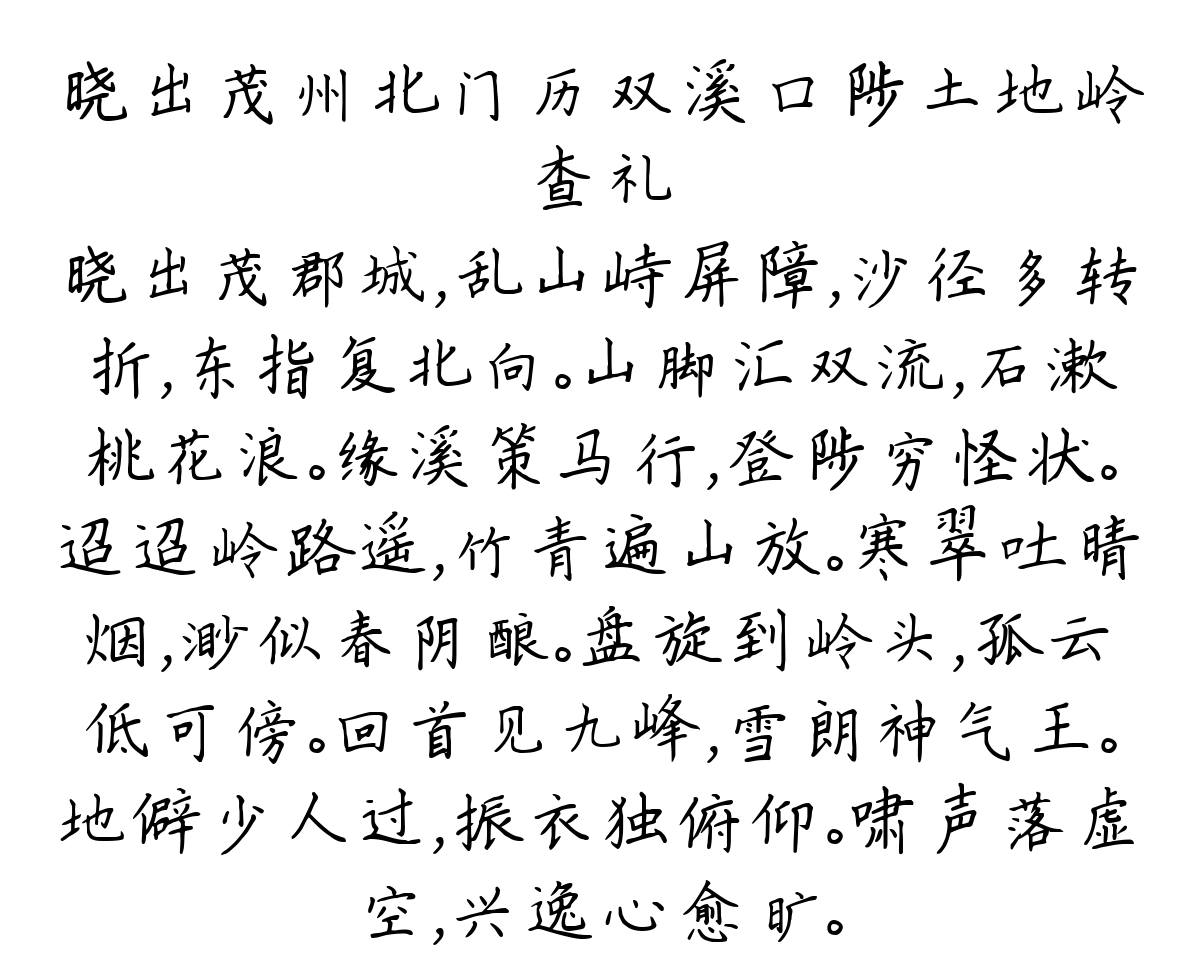 晓出茂州北门历双溪口陟土地岭
查礼
晓出茂郡城,乱山峙屏障,沙径多转
折,东指复北向。山脚汇双流,石漱
桃花浪。缘溪策马行,登陟穷怪状。
迢迢岭路遥,竹青遍山放。寒翠吐晴
烟,渺似春阴酿。盘旋到岭头,孤云
低可傍。回首见九峰,雪朗神气王。
地僻少人过,振衣独俯仰。啸声落虚
空,兴逸心愈旷。